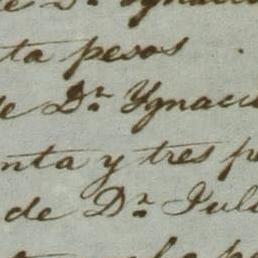 de Dn Ygnacio
ta pesos
de Dn Ygnacio
nta y tres pe
de Dn Juli